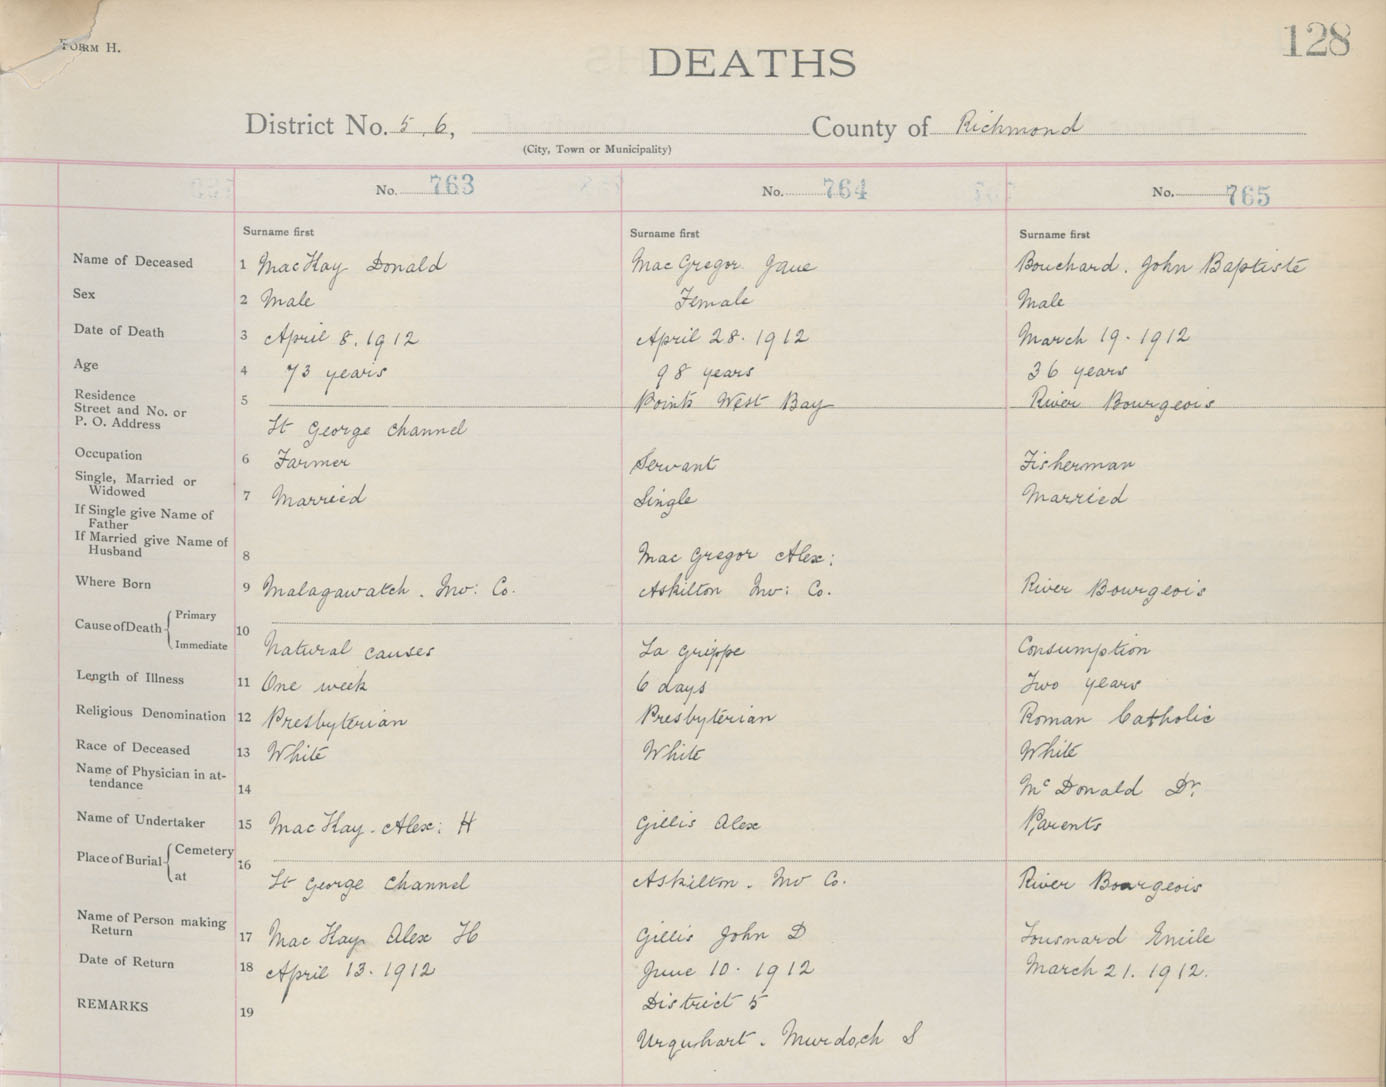 FORM H.
128
DEATHS
District No. 5, 6, County of Richmond
(City, Town or Municipality)
No. 763 No. 764 No. 765
Surname first Surname first Surname first
Name of Deceased 1 MacKay Donald MacGregor Jane Bouchard. John Baptiste
Sex 2 Male Female Male
Date of Death 3 April 8. 1912 April 28. 1912 March 19. 1912
Age 4 73 years 98 years 36 years
Residence
Street and No. or 5 Points West Bay River Bourgeois
P. O. Address St George Channel
Occupation 6 Farmer Servant Fisherman
Single, Married or
Widowed 7 Married Single Married
If Single give Name of
Father
If Married give Name of
Husband 8 MacGregor Alex:
Where Born 9 Malagawatch. Inv: Co. Askilton Inv: Co. River Bourgeois
Cause of Death Primary
10
Immediate Natural causes La Grippe Consumption
Length of Illness 11 One week 6 days Two years
Religious Denomination 12 Presbyterian Presbyterian Roman Catholic
Race of Deceased 13 White White White
Name of Physician in at-
tendance 14 McDonald Dr.
Name of Undertaker 15 MacKay. Alex: H Gillis Alex Parents
Place of Burial Cemetery
16
at St George Channel Askilton. Inv Co. River Bourgeois
Name of Person making
Return 17 MacKay Alex H Gillis John D Emile
Date of Return 18 April 13. 1912 June 10. 1912 March 21. 1912.
REMARKS 19 District 5
Urquhart. Murdoch S